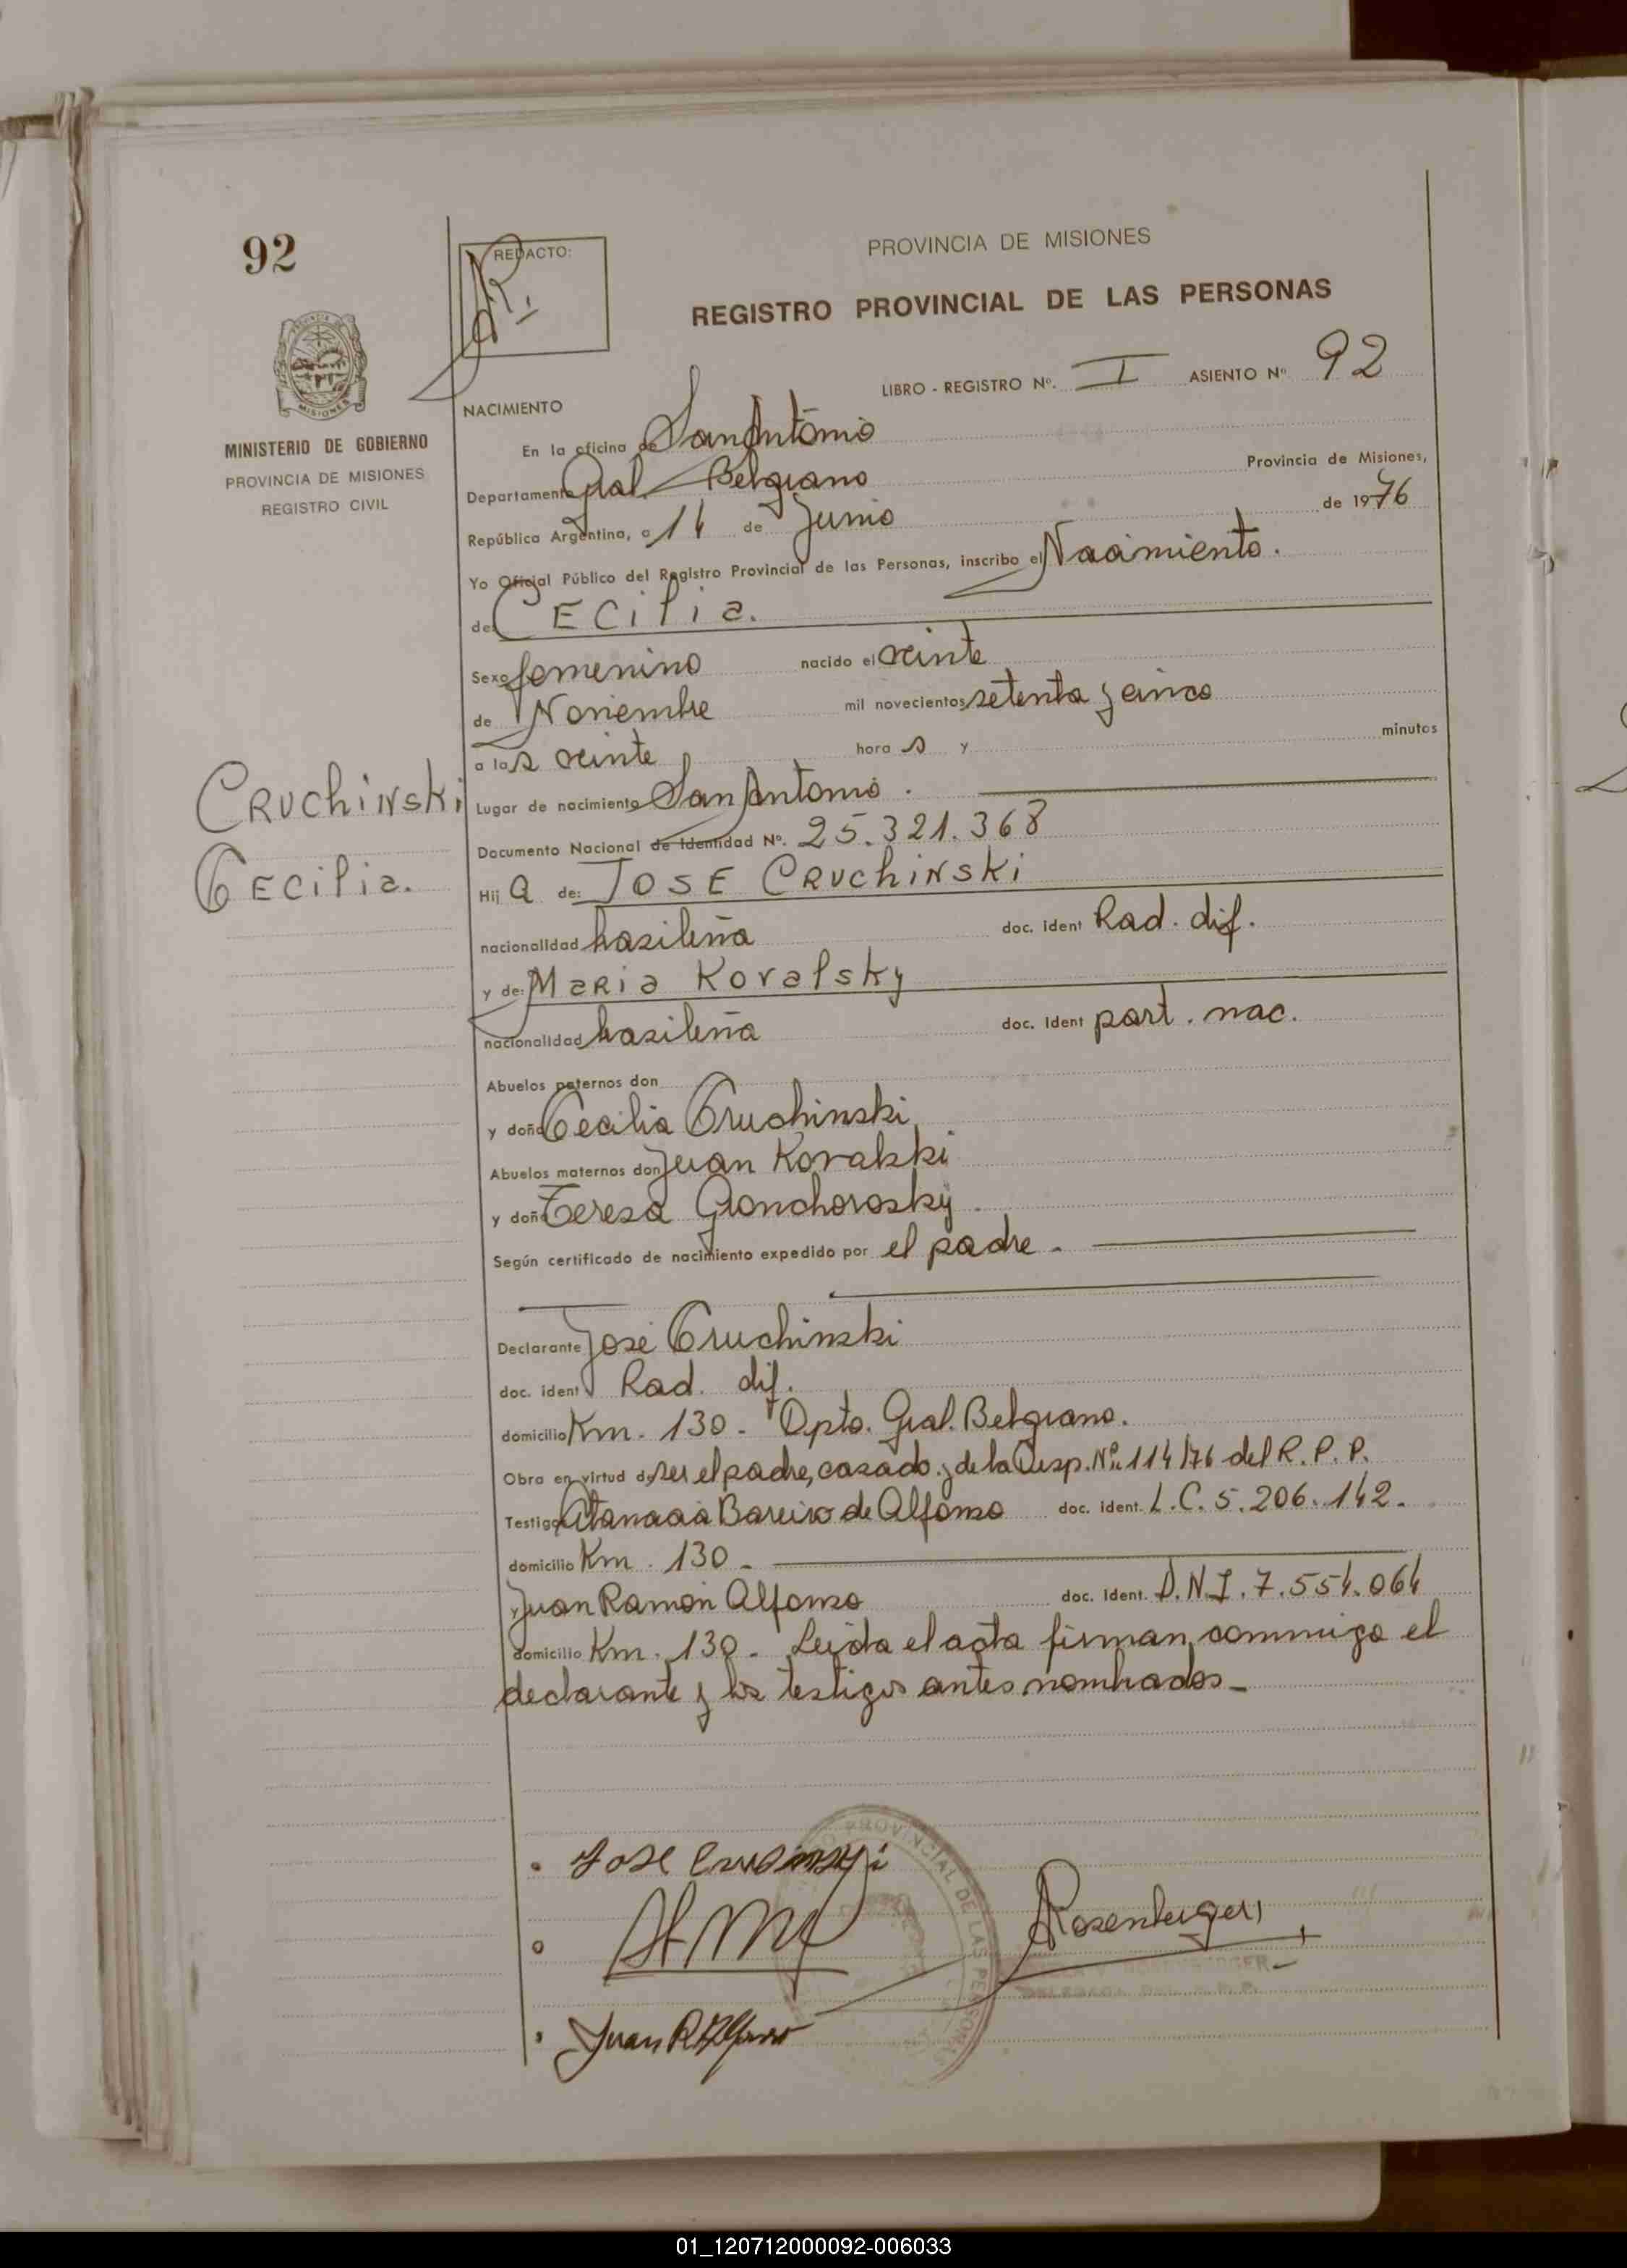 92
REDACTO:
PROVINCIA DE MISIONES
REGISTRO PROVINCIAL DE LAS PERSONAS
LIBRO - REGISTRO Nº. I ASIENTO Nº 92
MINISTERIO DE GOBIERNO
PROVINCIA DE MISIONES
REGISTRO CIVIL
NACIMIENTO
En la oficina de San Antonio
Departamento Gral. Belgrano Provincia de Misiones,
República Argentina, a 14 de Junio de 1976
Yo Oficial Público del Registro Provincial de las Personas, inscribo el Nacimiento.
de: CECilia.
Sexo femenino nacido el veinte
de Noviembre mil novecientos setenta y cinco
a las veinte hora s y minutos
Cruchinski
Cecilia.
Lugar de nacimiento San Antonio.
Documento Nacional de Identidad Nº. 25.321.368
Hij a de: JOSE CRUchiNski
nacionalidad brasileña doc. ident Rad. dif.
y de: Maria Kovalsky
nacionalidad brasileña doc. ident part. nac.
Abuelos paternos don
y doña Cecilia Cruchinski
Abuelos maternos don Juan Kovalski
y doña Teresa Gonchorosky
Según certificado de nacimiento expedido por el padre.
Declarante José Cruchinski
doc. ident Rad. dif.
domicilio Km. 130 - Dpto. Gral. Belgrano.
Obra en virtud de ser el padre, casado y de la Disp. Nº 114/76 del R. P. P.
Testigos Atanacia Bareiro de Alfonso doc. ident. L.C. 5.206.142.
domicilio Km. 130 -
y Juan Ramón Alfonso doc. ident. D.N.I. 7.554.064
domicilio Km. 130 - Leida el acta firman conmigo el
declarante y los testigos antes nombrados -
PROVINCIAL DE LAS PERSONAS
Rosenberger
Juan R Alfonso
01_120712000092-006033